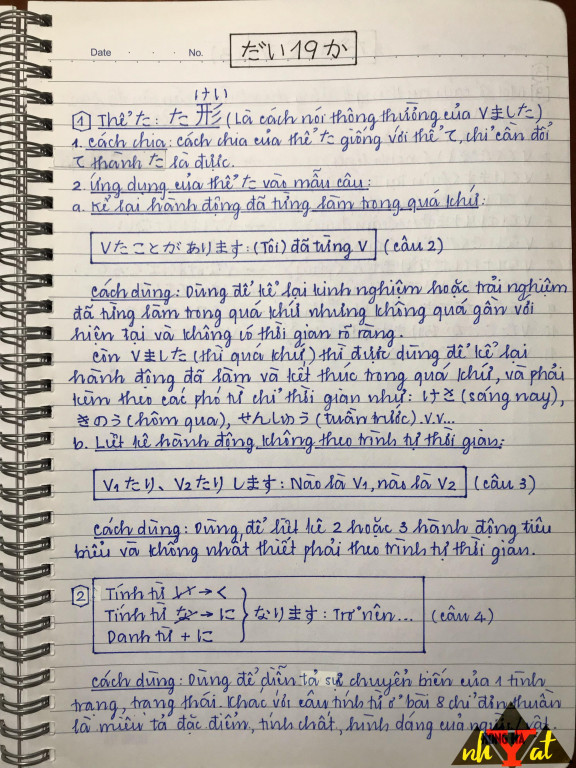 Date No.
だい19か
けい
1 Thể た: た形 (Là cách nói thông thường của Vました)
1. Cách chia: cách chia của thể た giống với thể て, chỉ cần đổi
て thành た là được.
2. Ứng dụng của thể た và mẫu câu:
a. Kể lại hành động đã từng làm trong quá khứ:
Vたことがあります: (Tôi) đã từng V (câu 2)
Cách dùng: Dùng để kể lại kinh nghiệm hoặc trải nghiệm
đã từng làm trong quá khứ nhưng không quá gần với
hiện tại và không có thời gian rõ ràng.
Còn Vました (thì quá khứ) thì được dùng để kể lại
hành động đã làm và kết thúc trong quá khứ, và phải
kèm theo các phó từ chỉ thời gian như: けさ (sáng nay),
きのう (hôm qua), せんしゅう (tuần trước).v.v...
b. Liệt kê hành động không theo trình tự thời gian:
V1たり、V2たりします: Nào là V1, nào là V2 (câu 3)
Cách dùng: Dùng để liệt kê 2 hoặc 3 hành động tiêu
biểu và không nhất thiết phải theo trình tự thời gian.
2 Tính từ い → く
Tính từ な → に } なります: Trở nên... (câu 4)
Danh từ + に
Cách dùng: Dùng để diễn tả sự chuyển biến của 1 tình
trạng, trạng thái. Khác với câu tính từ ở bài 8 chỉ đơn thuần
là miêu tả đặc điểm, tính chất, hình dáng của người/vật.
nh at